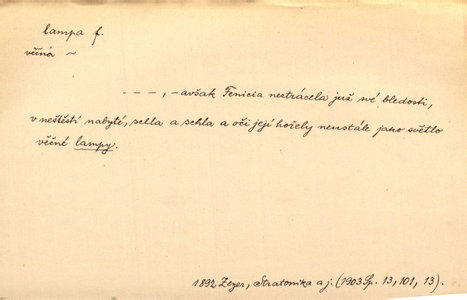 lampa f.
věčná ~
– – –, – avšak Fenicia neztrácela již své bledosti,
v neštěstí nabyté, schla a schla a oči její hořely neustále jako světlo
věčné lampy.
1892 Zeyer, Stratonika a j. (1903 Sp. 13, 101, 13).